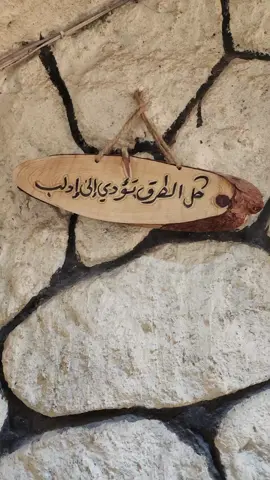 كل الطرق تؤدي إلى إدلب